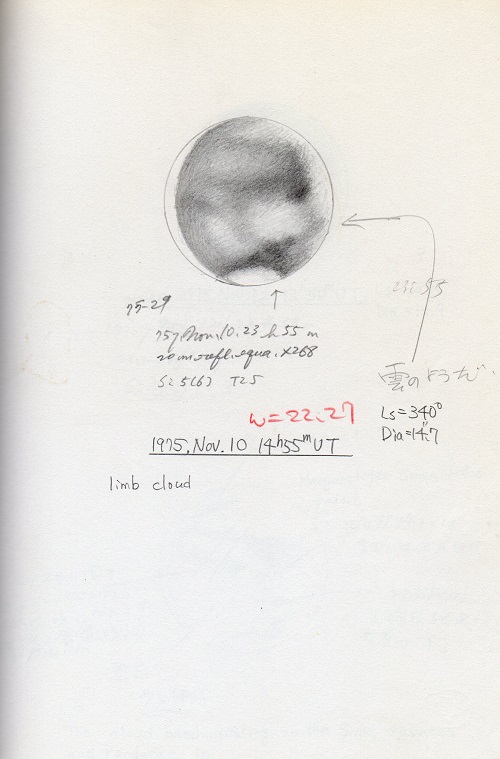 75-29
10. 23 h 55 m
refl. equa. ×268
S: 5(6) T25
雲のようだ.
ω=22.27
Ls=340°
Dia=14″.7
1975. Nov. 10 14h55mUT
limb cloud